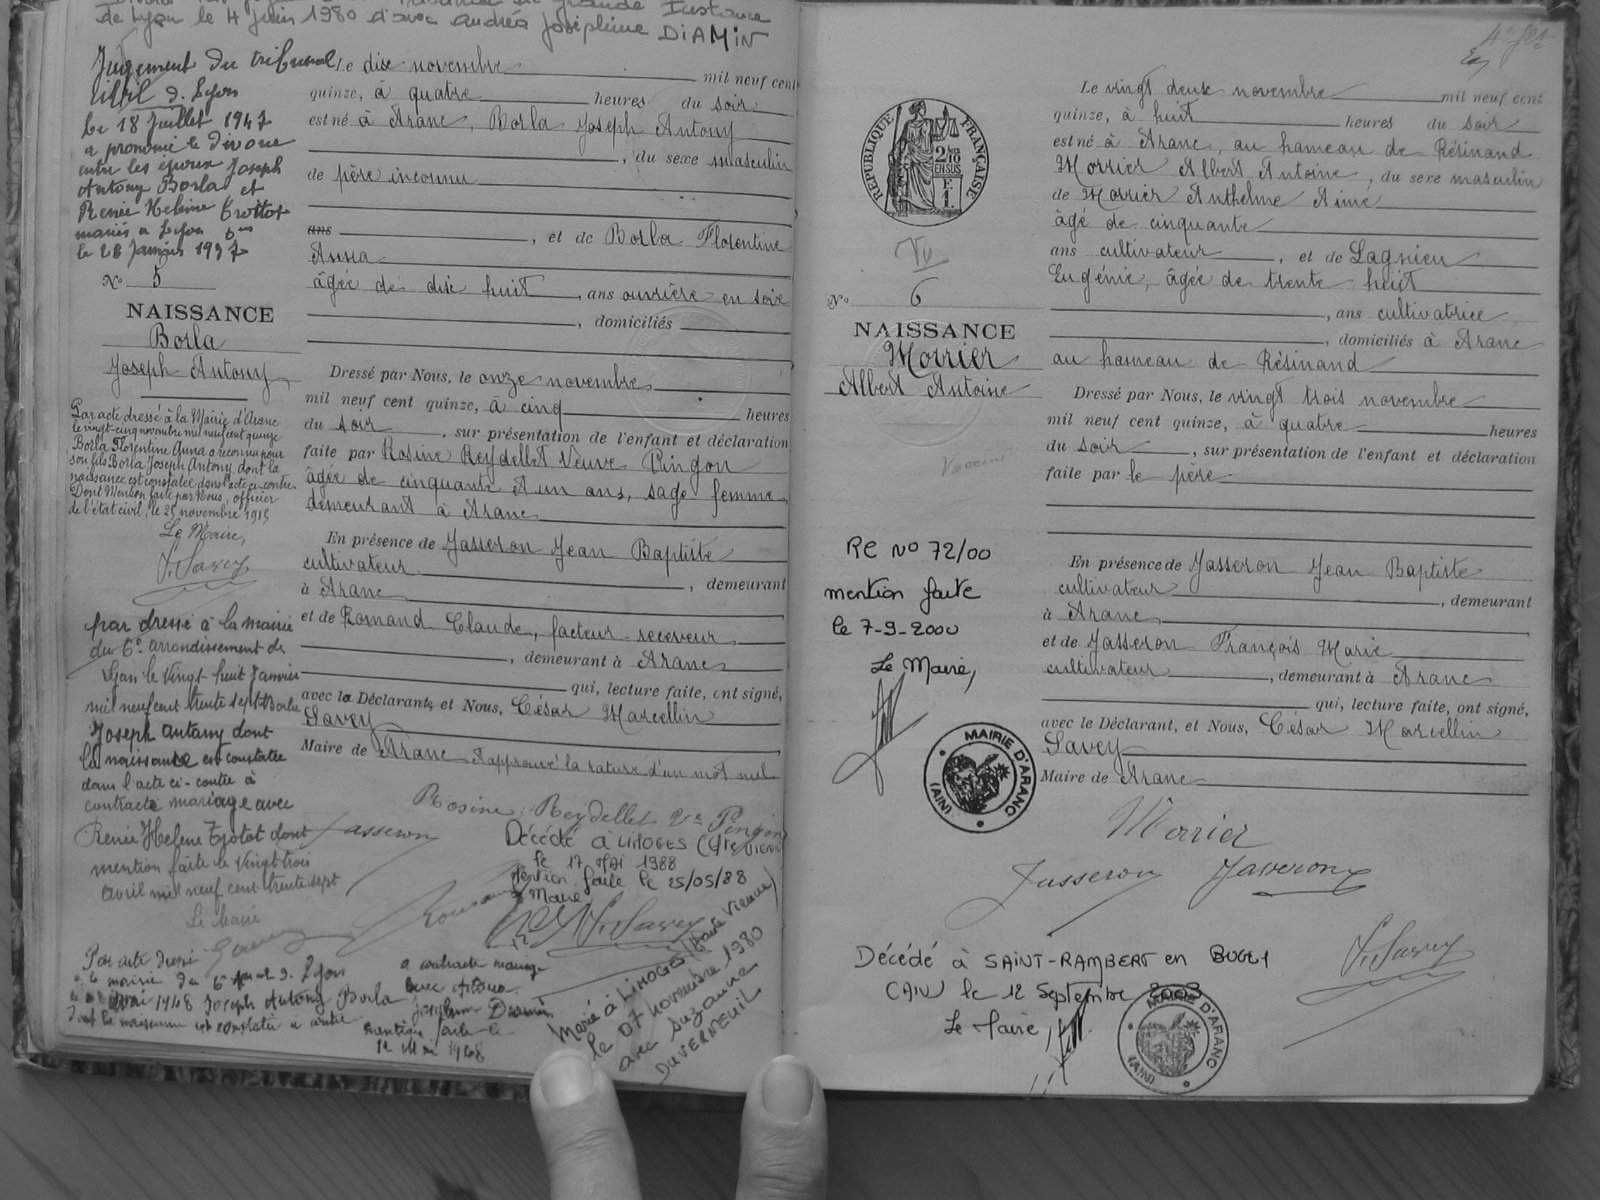 de Lyon le 4 Juin 1980 d'avec Andréa Joséphine DIAMIN
Jugement du tribunal
civil de Lyon
Le 18 Juillet 1947
a prononcé le divorce
entre les époux Joseph
Antony Borla et
Renée Hélène Trottot
mariés à Lyon 6me
le 28 Janvier 1937
N° 5
NAISSANCE
Borla
Joseph Antony
Par acte dressé à la Mairie d'Aranc
le vingt-cinq novembre mil neuf cent quinze
Borla Florentine Anna a reconnu pour
son fils Borla Joseph Antony dont la
naissance est constatée dans l'acte ci-contre
Dont Mention faite par Nous, officier
de l'état civil, le 25 novembre 1915
Le Maire,
Savey
par dressé à la mairie
du 6e arrondissement de
Lyon le vingt huit Janvier
mil neuf cent trente sept Borla
Joseph Antony dont
la naissance est constatée
dans l'acte ci-contre à
contracté mariage avec
Renée Helene Trotot dont
mention faite le vingt trois
avril mil neuf cent trente sept
Le Maire
Par acte dressé
à la mairie du 6e arrt de Lyon
1948 Joseph Antony Borla
dont la naissance est constatée ci contre
a contracté mariage
avec Andréa
Joséphine Diamin
mention faite le
12 Mai 1948
Le dix novembre mil neuf cent
quinze, à quatre heures du soir
est né à Aranc, Borla Joseph Antony
, du sexe masculin
de père inconnu
ans , et de Borla Florentine
Anna
âgée de dix huit ans ouvrière en soie
, domiciliés
Dressé par Nous, le onze novembre
mil neuf cent quinze, à cinq heures
du soir , sur présentation de l'enfant et déclaration
faite par Rosine Reydellet Veuve Pingon
âgée de cinquante et un ans, sage femme
demeurant à Aranc
En présence de Jasseron Jean Baptiste
cultivateur , demeurant
à Aranc
et de Romand Claude, facteur-receveur
, demeurant à Aranc
qui, lecture faite, ont signé,
avec la Déclarante et Nous, César Marcellin
Savey
Maire de Aranc Approuvé la rature d'un mot nul
Rosine Reydellet Ve Pingon
Jasseron
Décédé à LIMOGES (Hte VIENNE)
le 17 MAI 1988
Mention faite le 25/05/88
Le Maire
Romand
Savey
Marié à LIMOGES (Haute Vienne)
le 07 novembre 1980
avec Suzanne
DUVERNEUIL
REPUBLIQUE FRANÇAISE
2/10 EN SUS
Vu
N° 6
NAISSANCE
Morrier
Albert Antoine
Vacciné
RC N° 72/00
mention faite
le 7-9-2000
Le Maire,
MAIRIE D'ARANC
(AIN)
Le vingt deux novembre mil neuf cent
quinze, à huit heures du soir
est né à Aranc, au hameau de Résinand
Morrier Albert Antoine, du sexe masculin
de Morrier Anthelme Aimé
âgé de cinquante
ans cultivateur , et de Lagnieu
Eugénie, âgée de trente huit
, ans cultivatrice
, domiciliés à Aranc
au hameau de Résinand
Dressé par Nous, le vingt trois novembre
mil neuf cent quinze, à quatre heures
du soir , sur présentation de l'enfant et déclaration
faite par le père
En présence de Jasseron Jean Baptiste
cultivateur , demeurant
à Aranc
et de Jasseron François Marie
cultivateur , demeurant à Aranc
qui, lecture faite, ont signé,
avec le Déclarant, et Nous, César Marcellin
Savey
Maire de Aranc
Morrier
Jasseron Jasseron
Savey
Décédé à SAINT-RAMBERT en BUGEY
(AIN) le 12 Septembre 2003
Le Maire,
MAIRIE D'ARANC
(AIN)